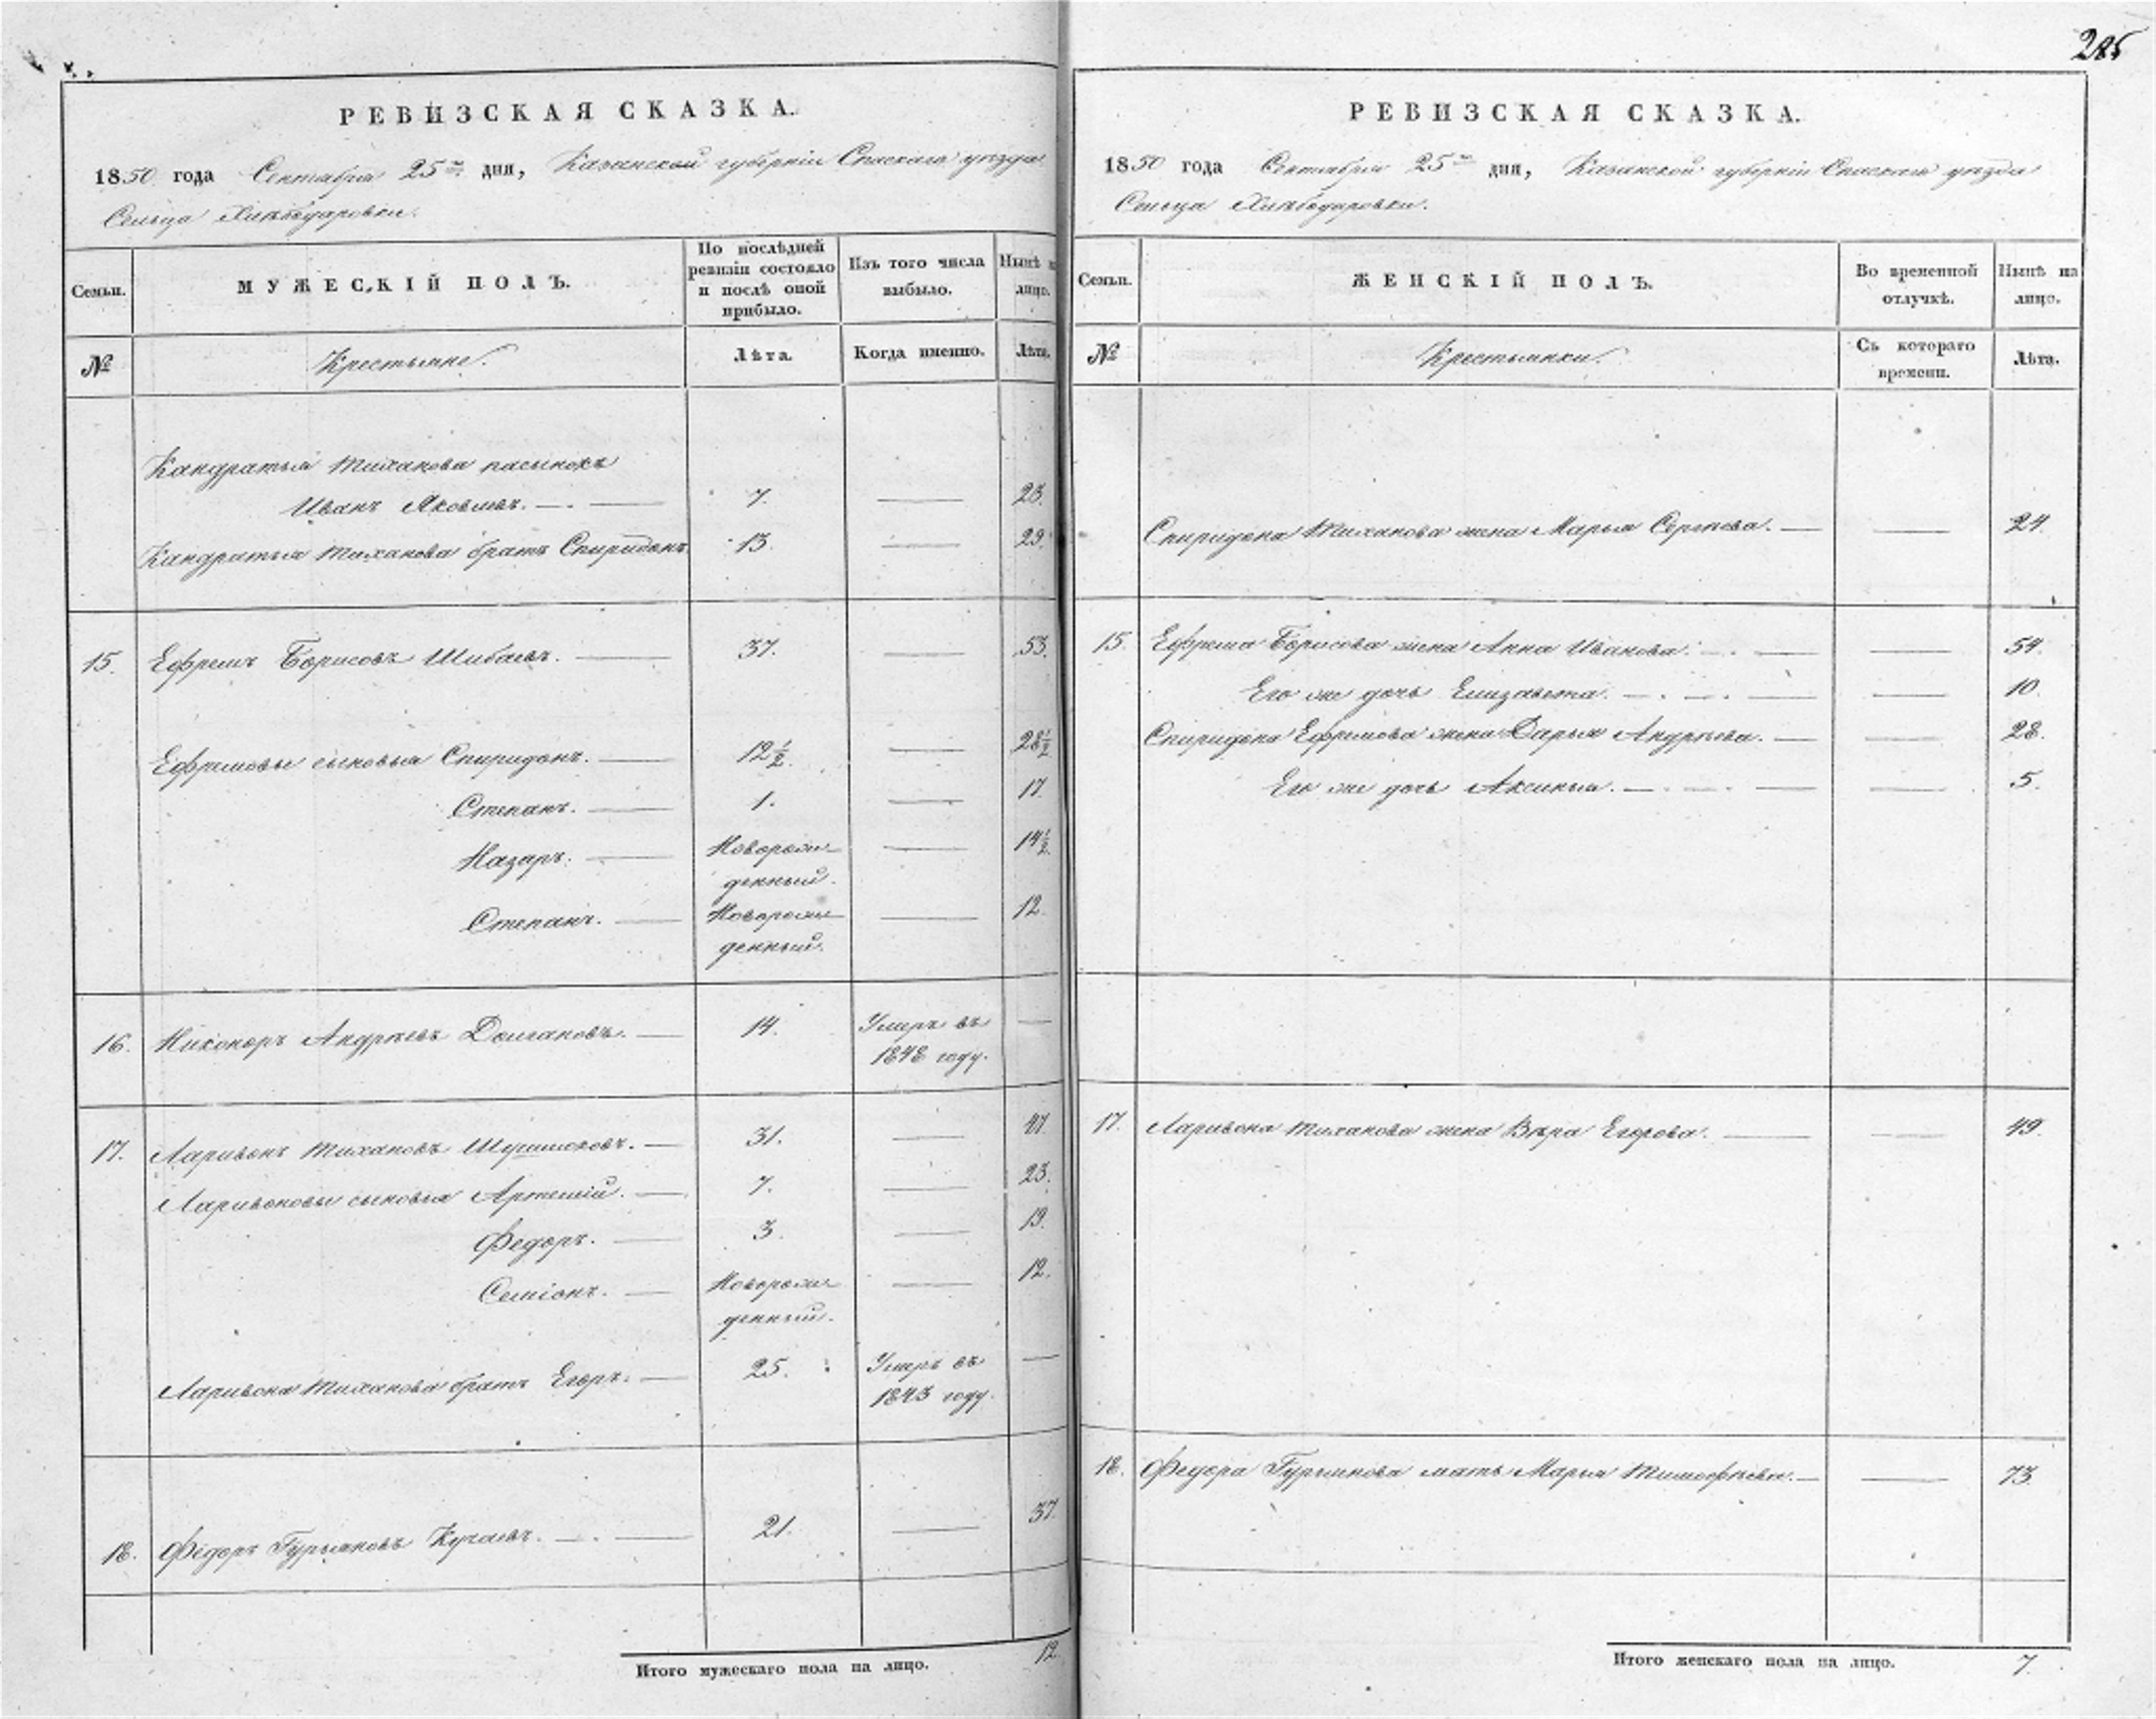 285
РЕВИЗСКАЯ СКАЗКА.
1850 года Сентября 25го дня, Казанской губерніи Спаскаго уѣзда
Сельца
Семьи.
МУЖЕСКІЙ ПОЛЪ.
По послѣдней ревизіи состояло и послѣ оной прибыло.
Изъ того числа выбыло.
Нынѣ на лицо.
№
Крестьяне.
Лѣта.
Когда именно.
Лѣта.
Кандратья Тиханова пасынокъ
Иванъ Яковлевъ. 7. — 23.
Кандратья Тиханова братъ Спиридонъ 13. — 29.
15. Ефремъ Борисовъ Шибаевъ. — 37. — 53.
Ефремовы сыновья Спиридонъ. — 12½. — 28½
Степанъ. — 1. — 17.
Назаръ. — Новорож- — 14½.
денный.
Степанъ. — Новорож- — 12.
денный.
16. Никоноръ Андрѣевъ Долгановъ. — 14. Умеръ въ —
1848 году.
17. Ларивонъ Тихановъ — 31. — 47.
Ларивоновы сыновья Артемій. — 7. — 23.
Федоръ. — 3. — 19.
Семіонъ. — Новорож- — 12.
денный.
Ларивона Тиханова братъ Егоръ. — 25. Умеръ въ —
1843 году.
18. Федоръ Гурьяновъ Кучаевъ. — 21. — 37.
Итого мужескаго пола на лицо. 12.
РЕВИЗСКАЯ СКАЗКА.
1850 года Сентября 25го дня, Казанской губерніи Спаскаго уѣзда
Сельца
Семьи.
ЖЕНСКІЙ ПОЛЪ.
Во временной отлучкѣ.
Нынѣ на лицо.
№
Крестьянки.
Съ котораго времени.
Лѣта.
Спиридона Тиханова жена Марья Сергѣева. — — 24.
15. Ефрема Борисова жена Анна Иванова. — — 54.
Его же дочь Елизавета. — — 10.
Спиридона Ефремова жена Дарья Андрѣева. — — 28.
Его же дочь Аксинья. — — 5.
17. Ларивона Тиханова жена Вѣра Егорова. — — 49.
18. Федора Гурьянова мать Марья Тимофѣева. — — 73.
Итого женскаго пола на лицо. 7.